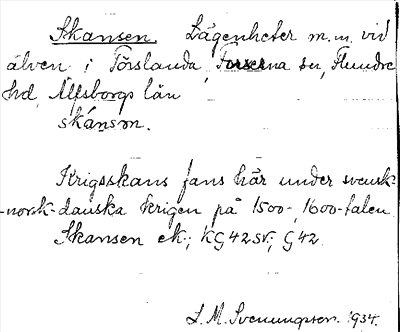 Skansen. Lägenheter m. m. vid
älven i Förslanda, Forserna sn, Flundre
hd, Älfsborgs län
skánsm.
Krigsskans fans här under svensk-
-norsk-danska krigen på 1500-, 1600-talen
Skansen ek.; KG42SV; G42
L. M. Svenungsson. 1934.